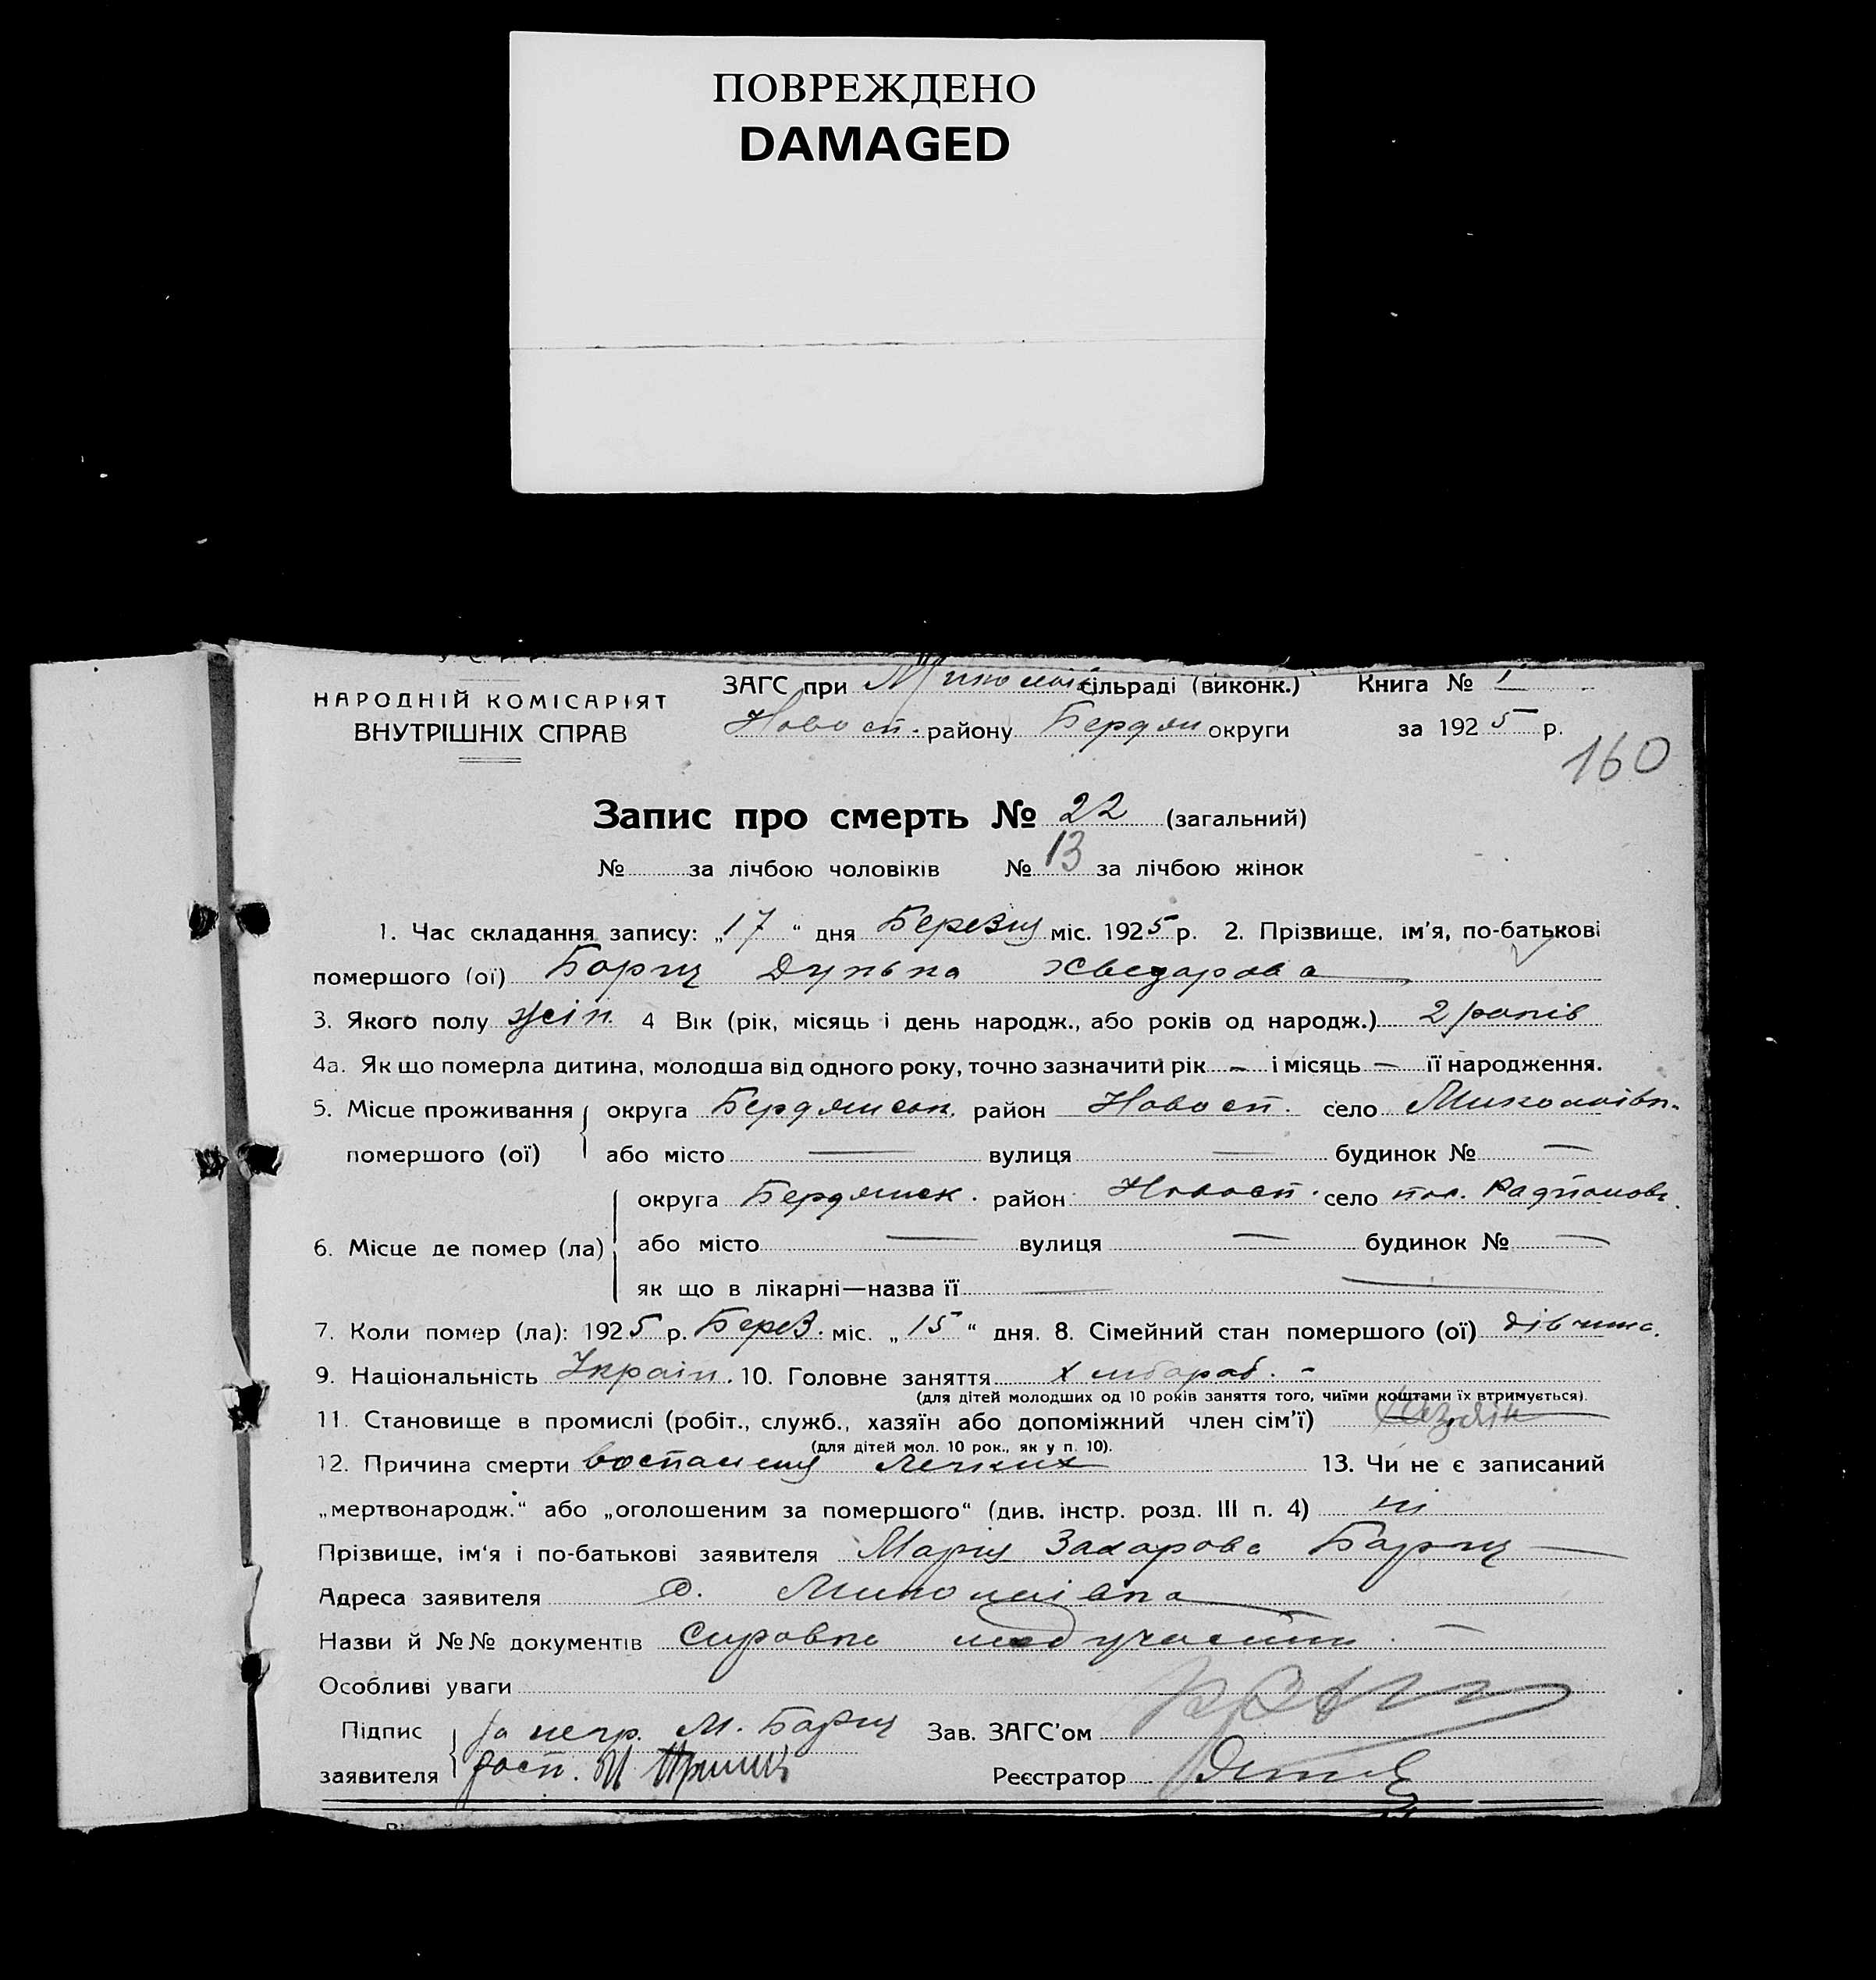 ПОВРЕЖДЕНО
DAMAGED
НАРОДНІЙ КОМІСАРІЯТ
ВНУТРІШНІХ СПРАВ
ЗАГС при Миколаїв сільраді (виконк.) Книга № 1
Новосп. району Бердян округи за 1925 р.
160
Запис про смерть № 22 (загальний)
№ за лічбою чоловіків № 13 за лічбою жінок
1. Час складання запису: „17“ дня Березня міс. 1925 р. 2. Прізвище, ім'я, по-батькові
помершого (ої) Хведарова
3. Якого полу жін. 4 Вік (рік, місяць і день народж., або років од народж.) 2 років
4а. Як що померла дитина, молодша від одного року, точно зазначити рік — і місяць — її народження.
5. Місце проживання округа Бердянськ. район Новосп. село Миколаївк.
помершого (ої) або місто — вулиця — будинок № —
округа Бердянск. район Новосп. село
6. Місце де помер (ла) або місто — вулиця — будинок № —
як що в лікарні—назва її —
7. Коли помер (ла): 1925 р. Берез. міс. „15“ дня. 8. Сімейний стан помершого (ої) дівчина.
9. Національність Україн. 10. Головне заняття хлібороб. -
(для дітей молодших од 10 років заняття того, чиїми коштами їх втримується).
11. Становище в промислі (робіт., служб., хазяїн або допоміжний член сім'ї) хазяін
(для дітей мол. 10 рок., як у п. 10).
12. Причина смерти воспаления легких 13. Чи не є записаний
„мертвонародж.“ або „оголошеним за помершого“ (див. інстр. розд. III п. 4) ні
Прізвище, ім'я і по-батькові заявителя Марія Захарова
Адреса заявителя с. Миколаівка
Назви й №№ документів
Особливі уваги
Підпис за негр. М. Зав. ЗАГС'ом
заявителя расп. Реєстратор